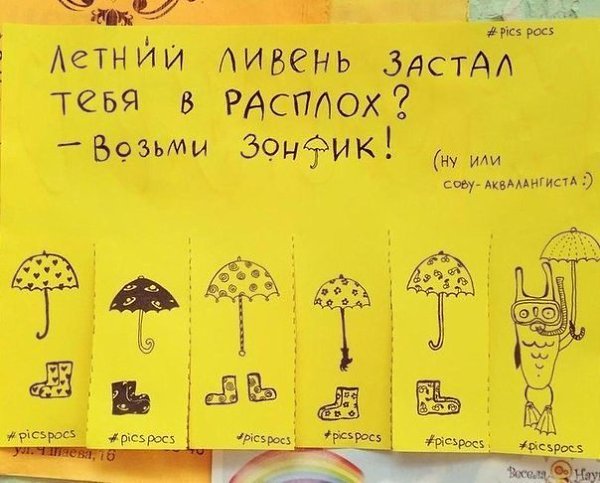 # pics pocs
Летний ливень застал
тебя в расплох?
– Возьми зонтик!
(ну или
сову-аквалангиста :)
#picspocs
#picspocs
#picspocs
#picspocs
#picspocs
#picspocs
ул. Чапаева, 16
Весела
Нау